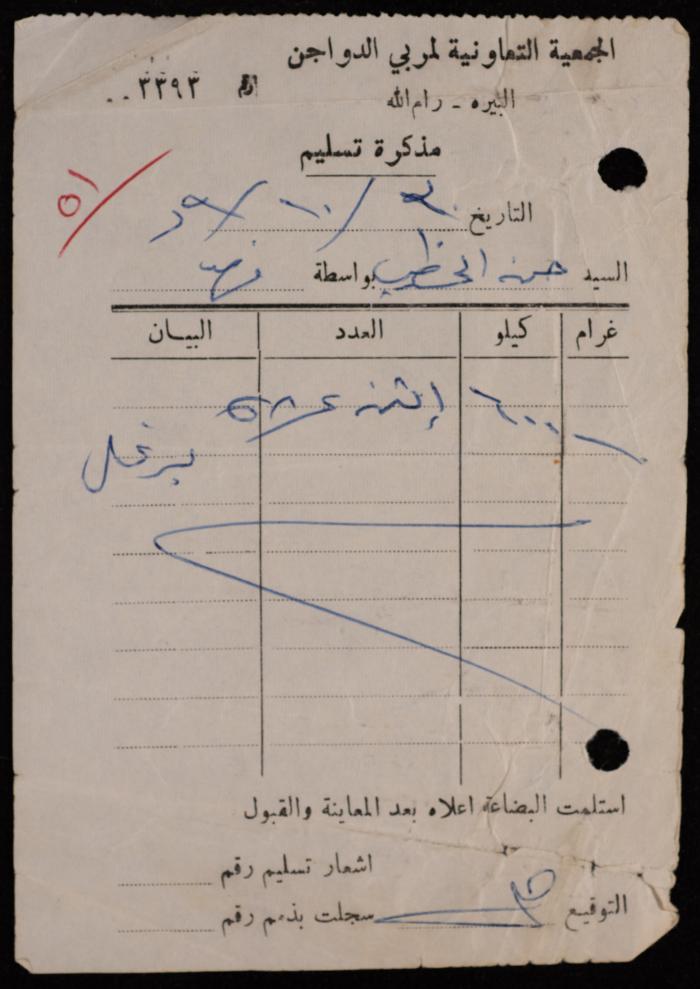 الجمعية التعاونية لمربي الدواجن
البيره - رام الله
٣٣٩٣
مذكرة تسليم
٥١/
التاريخ ٣٠/١٠/
السيد حسن الخطيب بواسطة
غرام كيلو العدد البيــان
إثنى عشر
استلمت البضاعة اعلاه بعد المعاينة والقبول
اشعار تسليم رقم
التوقيع
سجلت بذمم رقم